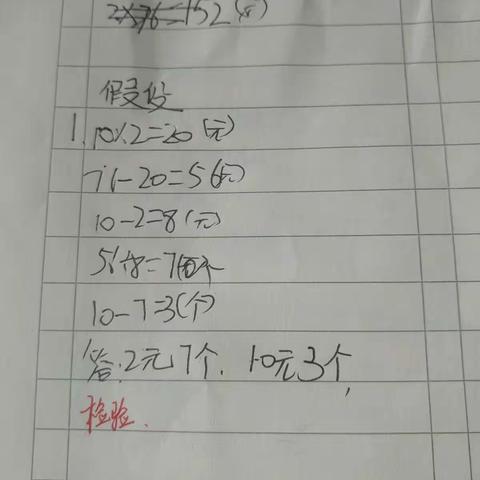 2×76=152(元)
假设
1.10×2=20(元)
76-20=56(元)
10-2=8(元)
56÷8=7(个)
10-7=3(个)
答:2元7个.10元3个,
检验.